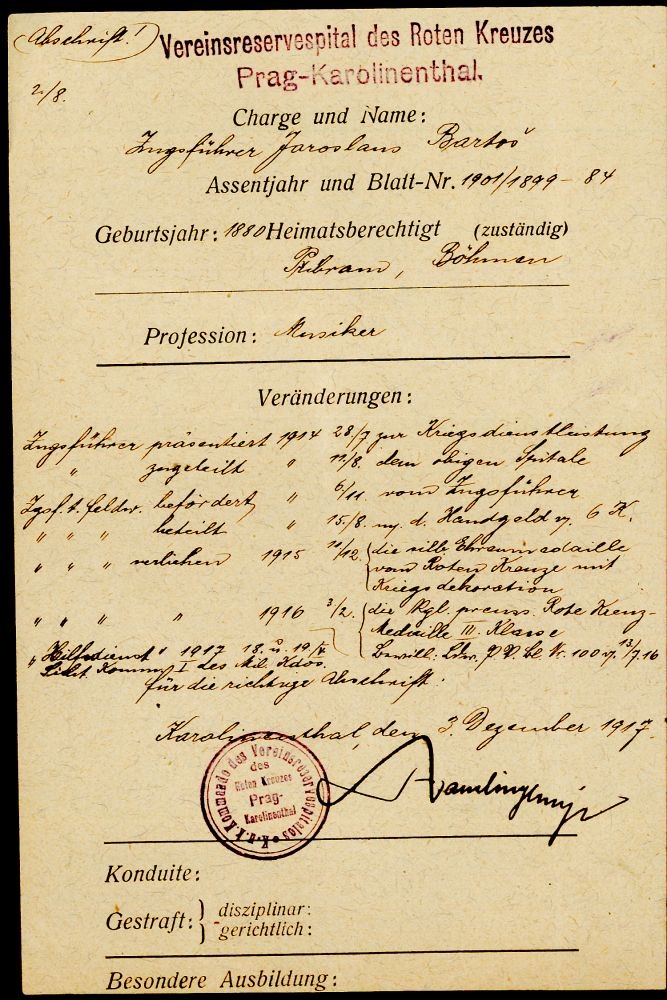 Abschrift!
Vereinsreservespital des Roten Kreuzes
Prag-Karolinenthal.
2/8.
Charge und Name:
Zugsführer Jaroslaus Bartoš
Assentjahr und Blatt-Nr. 1901/1899 - 84
Geburtsjahr: 1880 Heimatsberechtigt (zuständig)
Přibram, Böhmen
Profession: Musiker
Veränderungen:
Zugsführer präsentiert 1914 28/7 zur Kriegsdienstleistung
" zugeteilt " 11/8. dem obigen Spitale
Zgsf. t. Feldw. befördert " 6/11. vom Zugsführer
" " " beteilt " 15./8. m. d. Handgeld v. 6 K.
" " " verliehen 1915 10/12. die silb. Ehrenmedaille
vom Roten Kreuze mit
Kriegsdekoration
" " " " 1916 3/2. die Kgl. preuss. Rote Kreuz-
Medaille III. Klasse
" Hilfsdienst " 1917 18. u. 19/
I des Mil. Kdos.
für die richtige Abschrift:
Karolinenthal, den 3. Dezember 1917.
K. u. k. Kommando des Vereinsreservespitales
des
Roten Kreuzes
Prag-
Karolinenthal
Konduite:
Gestraft: disziplinar:
gerichtlich:
Besondere Ausbildung: